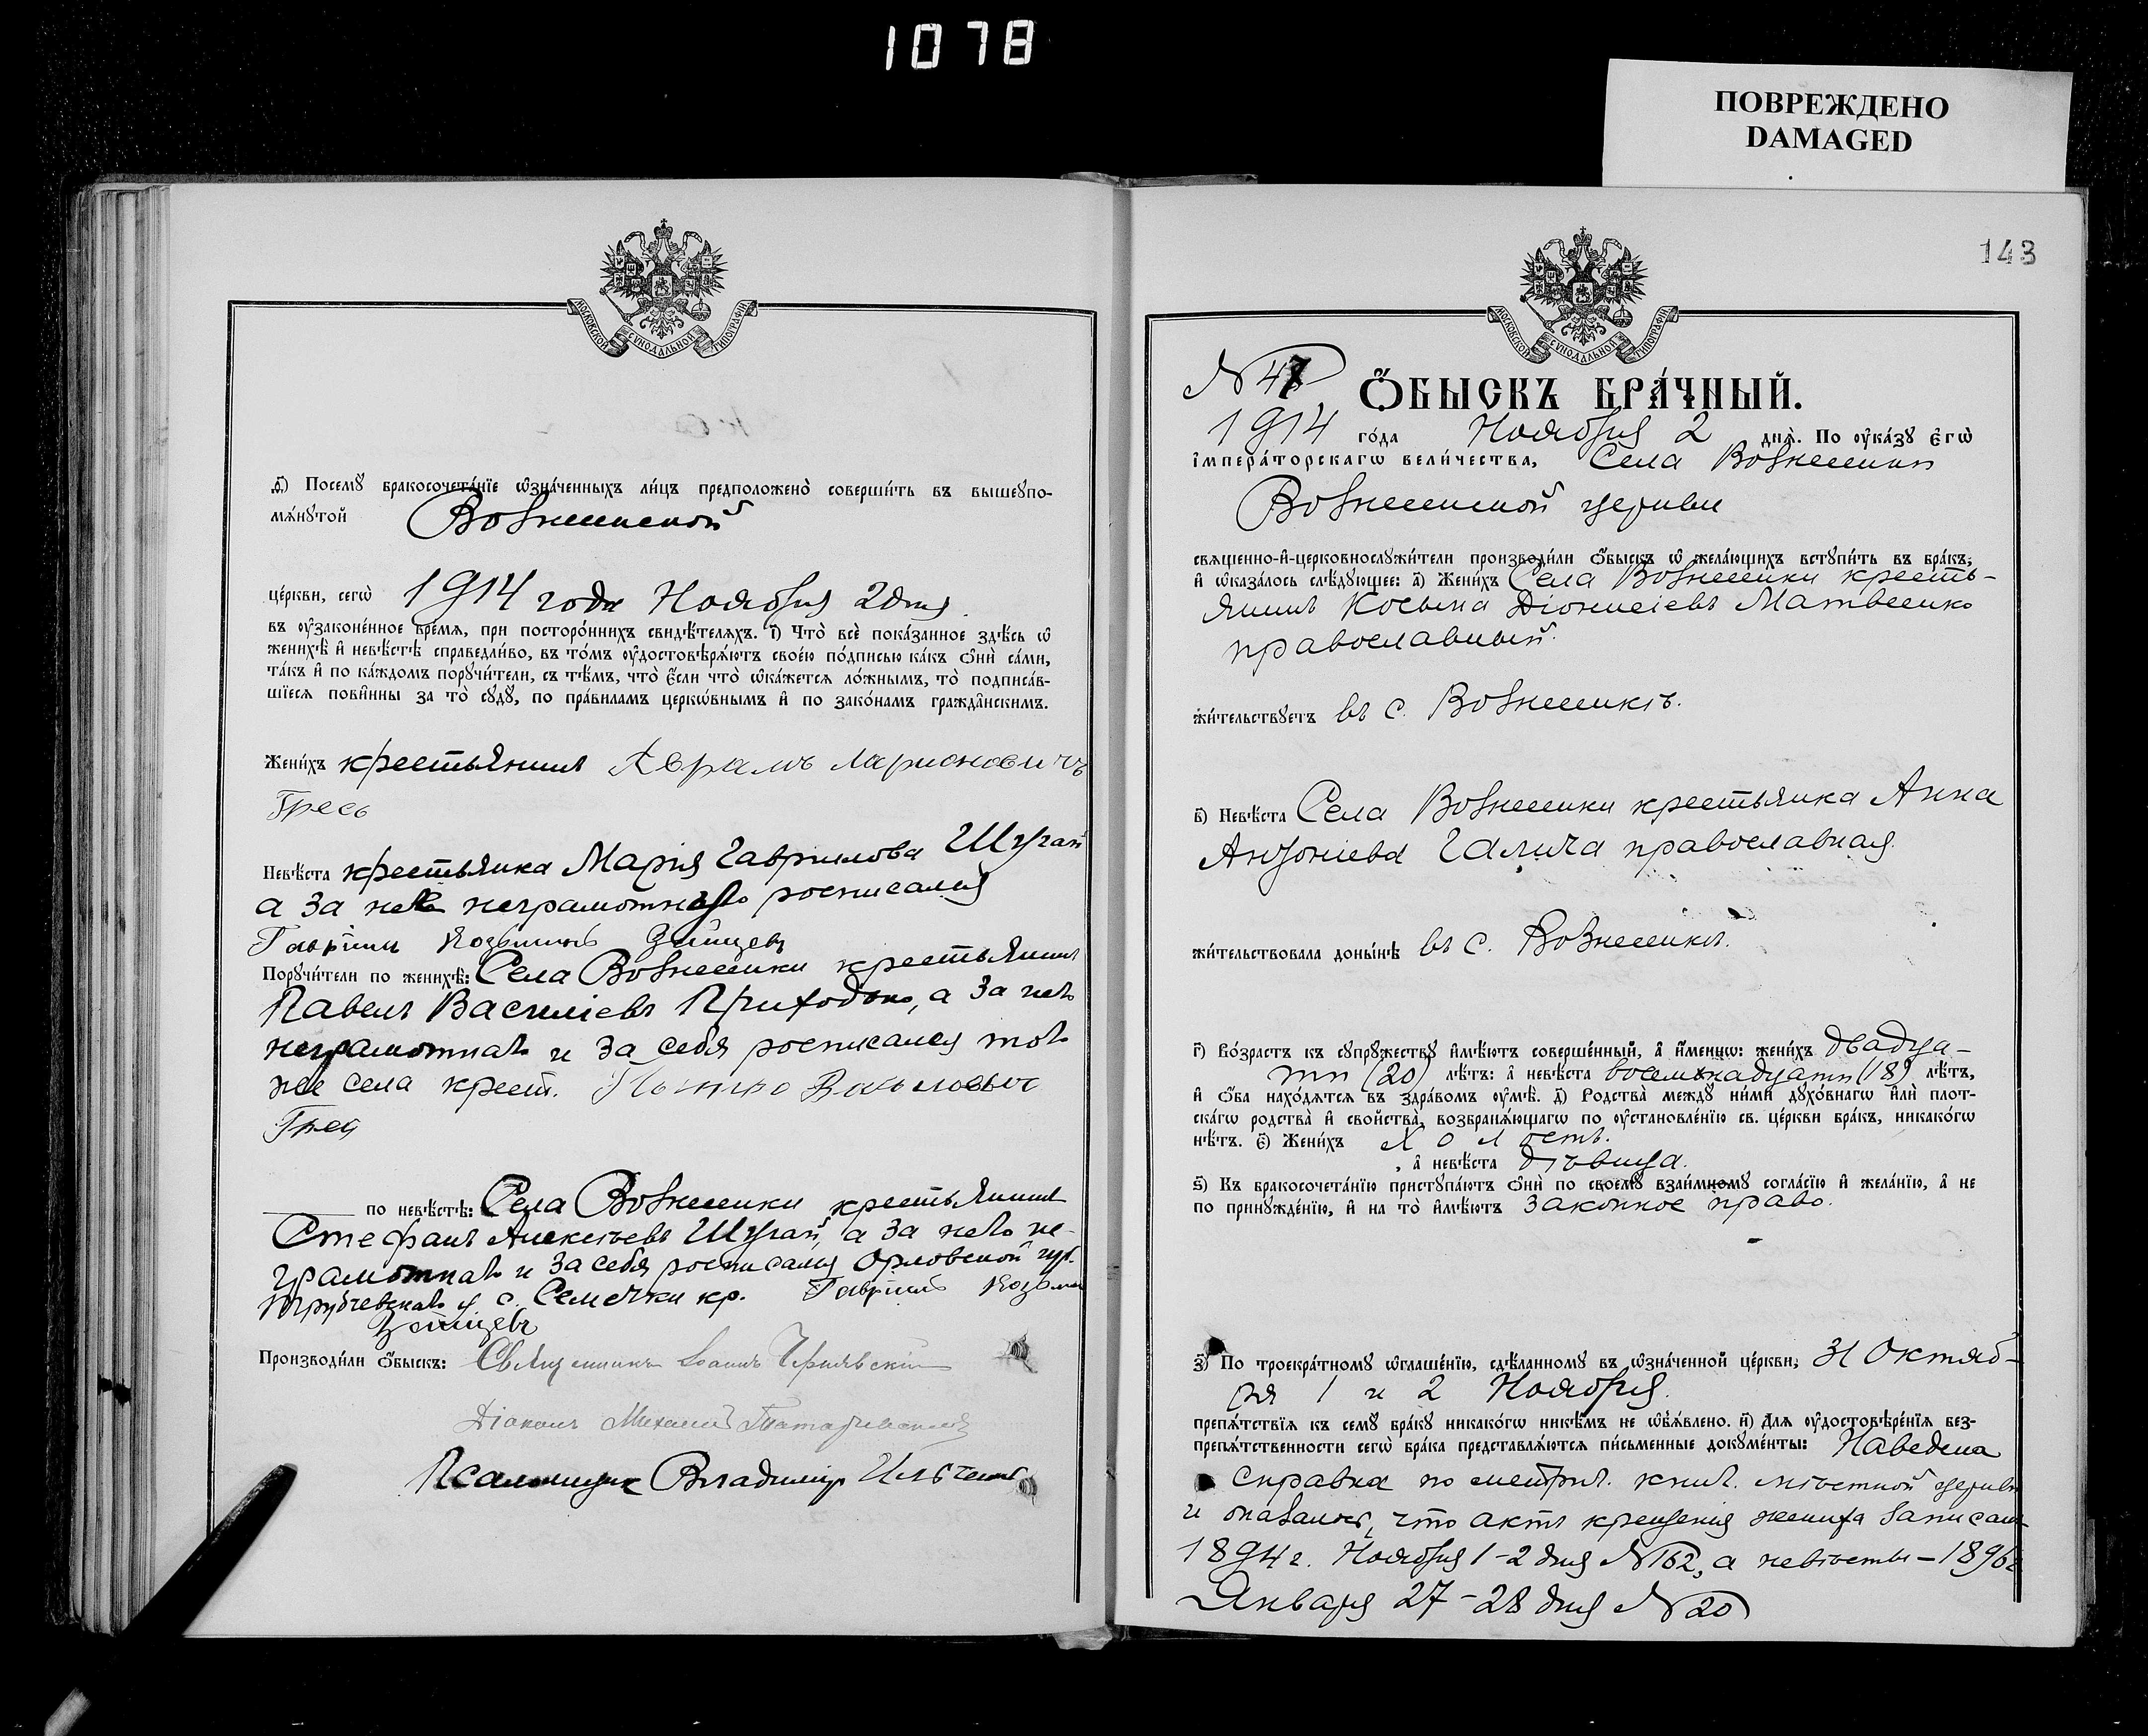 1078
ПОВРЕЖДЕНО
DAMAGED
МОСКОВСКОЙ СѴНОДАЛЬНОЙ ТИПОГРАФІИ
ѳ҃) Посемꙋ̀ бракосочета́нїе ѡ҆зна́ченныхъ ли́цъ предположено̀ соверши́ть въ вышеꙋпо-
мѧ́нꙋтой Вознесенской
це́ркви, сегѡ̀ 1914 года Ноября 2 дня.
въ ѹ҆законе́нное вре́мѧ, при посторо́ннихъ свидѣ́телѧхъ. і҃) Что̀ всѐ пока́занное здѣ́сь ѡ҆
женихѣ̀ и҆ невѣ́стѣ справедли́во, въ то́мъ ѹ҆достовѣрѧ́ютъ свое́ю по́дписью ка́къ ѻ҆нѝ са́ми,
та́къ и҆ по ка́ждомъ порꙋчи́тели, съ тѣ́мъ, что̀ є҆́сли что̀ ѡ҆ка́жетсѧ ло́жнымъ, то̀ подписа́в-
шїесѧ пови́нны за то̀ сꙋдꙋ̀, по пра́виламъ церкѡ́внымъ и҆ по зако́намъ гражда́нскимъ.
Жени́хъ крестьянинъ Аврамъ Ларионовичъ
Гресь
Невѣ́ста крестьянка Марія Гаврилова Шугай
а за нее неграмотную росписался
Гавріилъ Козьминъ Зайцевъ
Порꙋчи́тели по женихѣ̀: Села Вознесенки крестьянинъ
Павелъ Василіевъ Приходько, а за него
неграмотнаго и за себя росписался того
же села крест.
Гресь
по невѣ́стѣ: Села Вознесенки крестьянинъ
Стефанъ Алексѣевъ Шугай, а за него не-
грамотнаго и за себя росписался Орловской губ.
Трубчевскаго у. с. Семечки кр. Гавріилъ Козьминъ
Зайцевъ
Производи́ли ѻ҆́быскъ: Священникъ Іоаннъ Чернявскій
Діаконъ Михаилъ
Псаломщикъ Владиміръ Ильченко
143
МОСКОВСКОЙ СѴНОДАЛЬНОЙ ТИПОГРАФІИ
N 47
Ѻ҆́БЫСКЪ БРА́ЧНЫЙ.
1914 го́да Ноября 2 днѧ̀. По ѹ҆ка́зꙋ є҆гѡ̀
і҆мпера́торскагѡ вели́чества, Села Вознесенки
Вознесенской церкви
свѧщенно-и҆-церковнослꙋжи́тели производи́ли ѻ҆́быскъ ѡ҆ жела́ющихъ встꙋпи́ть въ бра́къ,
и҆ ѡ҆каза́лось слѣ́дꙋющее: а҃) Жени́хъ Села Вознесенки кресть-
янинъ Косьма Діонисіевъ Матвеенко
православный.
жи́тельствꙋетъ въ с. Вознесенкѣ.
в҃) Невѣ́ста Села Вознесенки крестьянка Анна
Антоніева Галича православная.
жи́тельствовала доны́нѣ въ с. Вознесенкѣ.
г҃) Во́зрастъ къ сꙋпрꙋ́жествꙋ и҆мѣ́ютъ соверше́нный, а҆ и҆́меннѡ: жени́хъ двадца-
ти (20) лѣ́тъ: а҆ невѣ́ста восемнадцати (18) лѣ́тъ,
и҆ ѻ҆́ба нахо́дѧтсѧ въ здра́вомъ ѹ҆мѣ̀. д҃) Родства̀ междꙋ̀ ни́ми дꙋхо́внагѡ и҆лѝ плот-
ска́гѡ родства̀ и҆ сво́йства, возбранѧ́ющагѡ по ѹ҆становле́нїю св. це́ркви бра́къ, никако́гѡ
нѣ́тъ. є҃) Жени́хъ холостъ.
, а҆ невѣ́ста дѣвица.
ѕ҃) Къ бракосочета́нїю пристꙋпа́ютъ ѻ҆нѝ по своемꙋ̀ взаи́мномꙋ согла́сїю и҆ жела́нїю, а҆ не
по принꙋжде́нїю, и҆ на то̀ и҆мѣ́ютъ законное право.
з҃) По троекра́тномꙋ ѡ҆глаше́нїю, сдѣ́ланномꙋ въ ѡ҆зна́ченной це́ркви, 31 Октяб-
ря 1 и 2 Ноября.
препѧ́тствїѧ къ семꙋ̀ бра́кꙋ никако́гѡ никѣ́мъ не ѡ҆б̾ѧ́влено. и҃) Длѧ ѹ҆достовѣре́нїѧ без-
препѧ́тственности сегѡ̀ бра́ка представлѧ́ютсѧ пи́сьменные докꙋме́нты: Наведена
справка по метрич. книг. мѣстной церкви
и оказалось, что актъ крещенія жениха записанъ
1894 г. Ноября 1-2 дня N 162, а невѣсты - 1896 г
Января 27-28 дня N 20